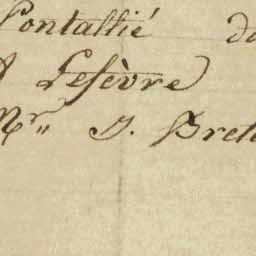 Pontallié
Lefèvre
Mr J. Bret